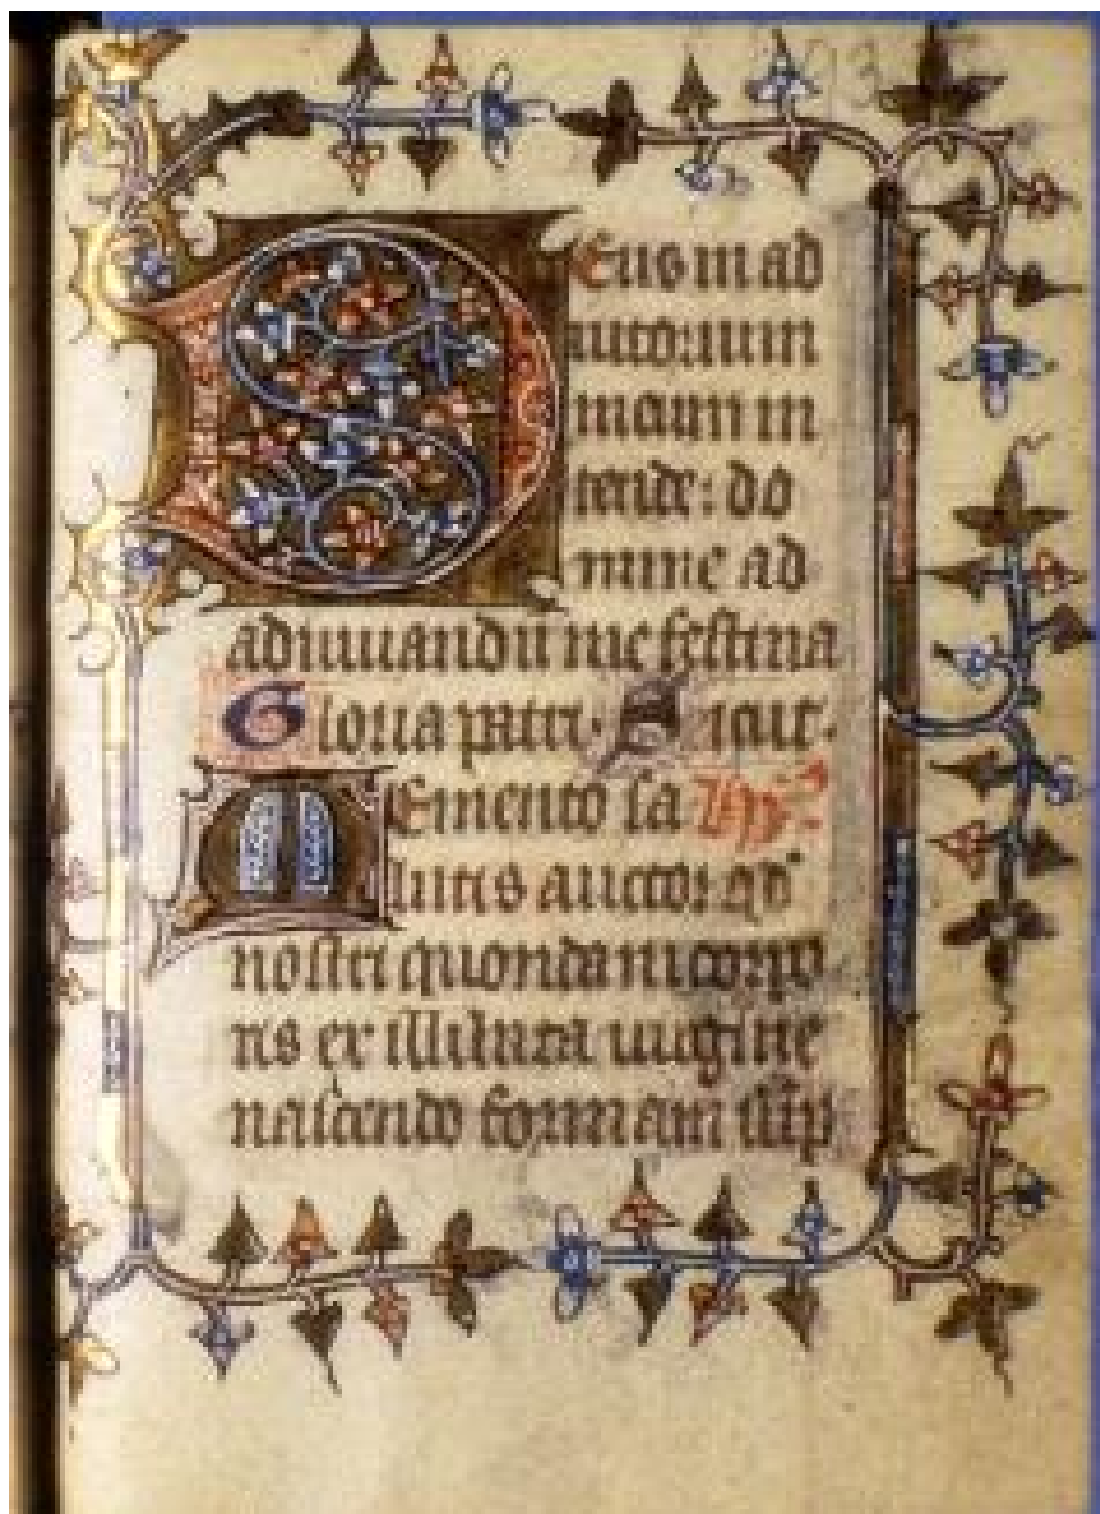 Deus in ad
iutorium
meum in
tende: do
mine ad
adiuuandū me festina
Gloria patri. Sicut.
Memento sa Hyᵒ:
lutis auctor qd
nostri quondam corpo
ris ex illibata uirgine
nascendo formam sūp